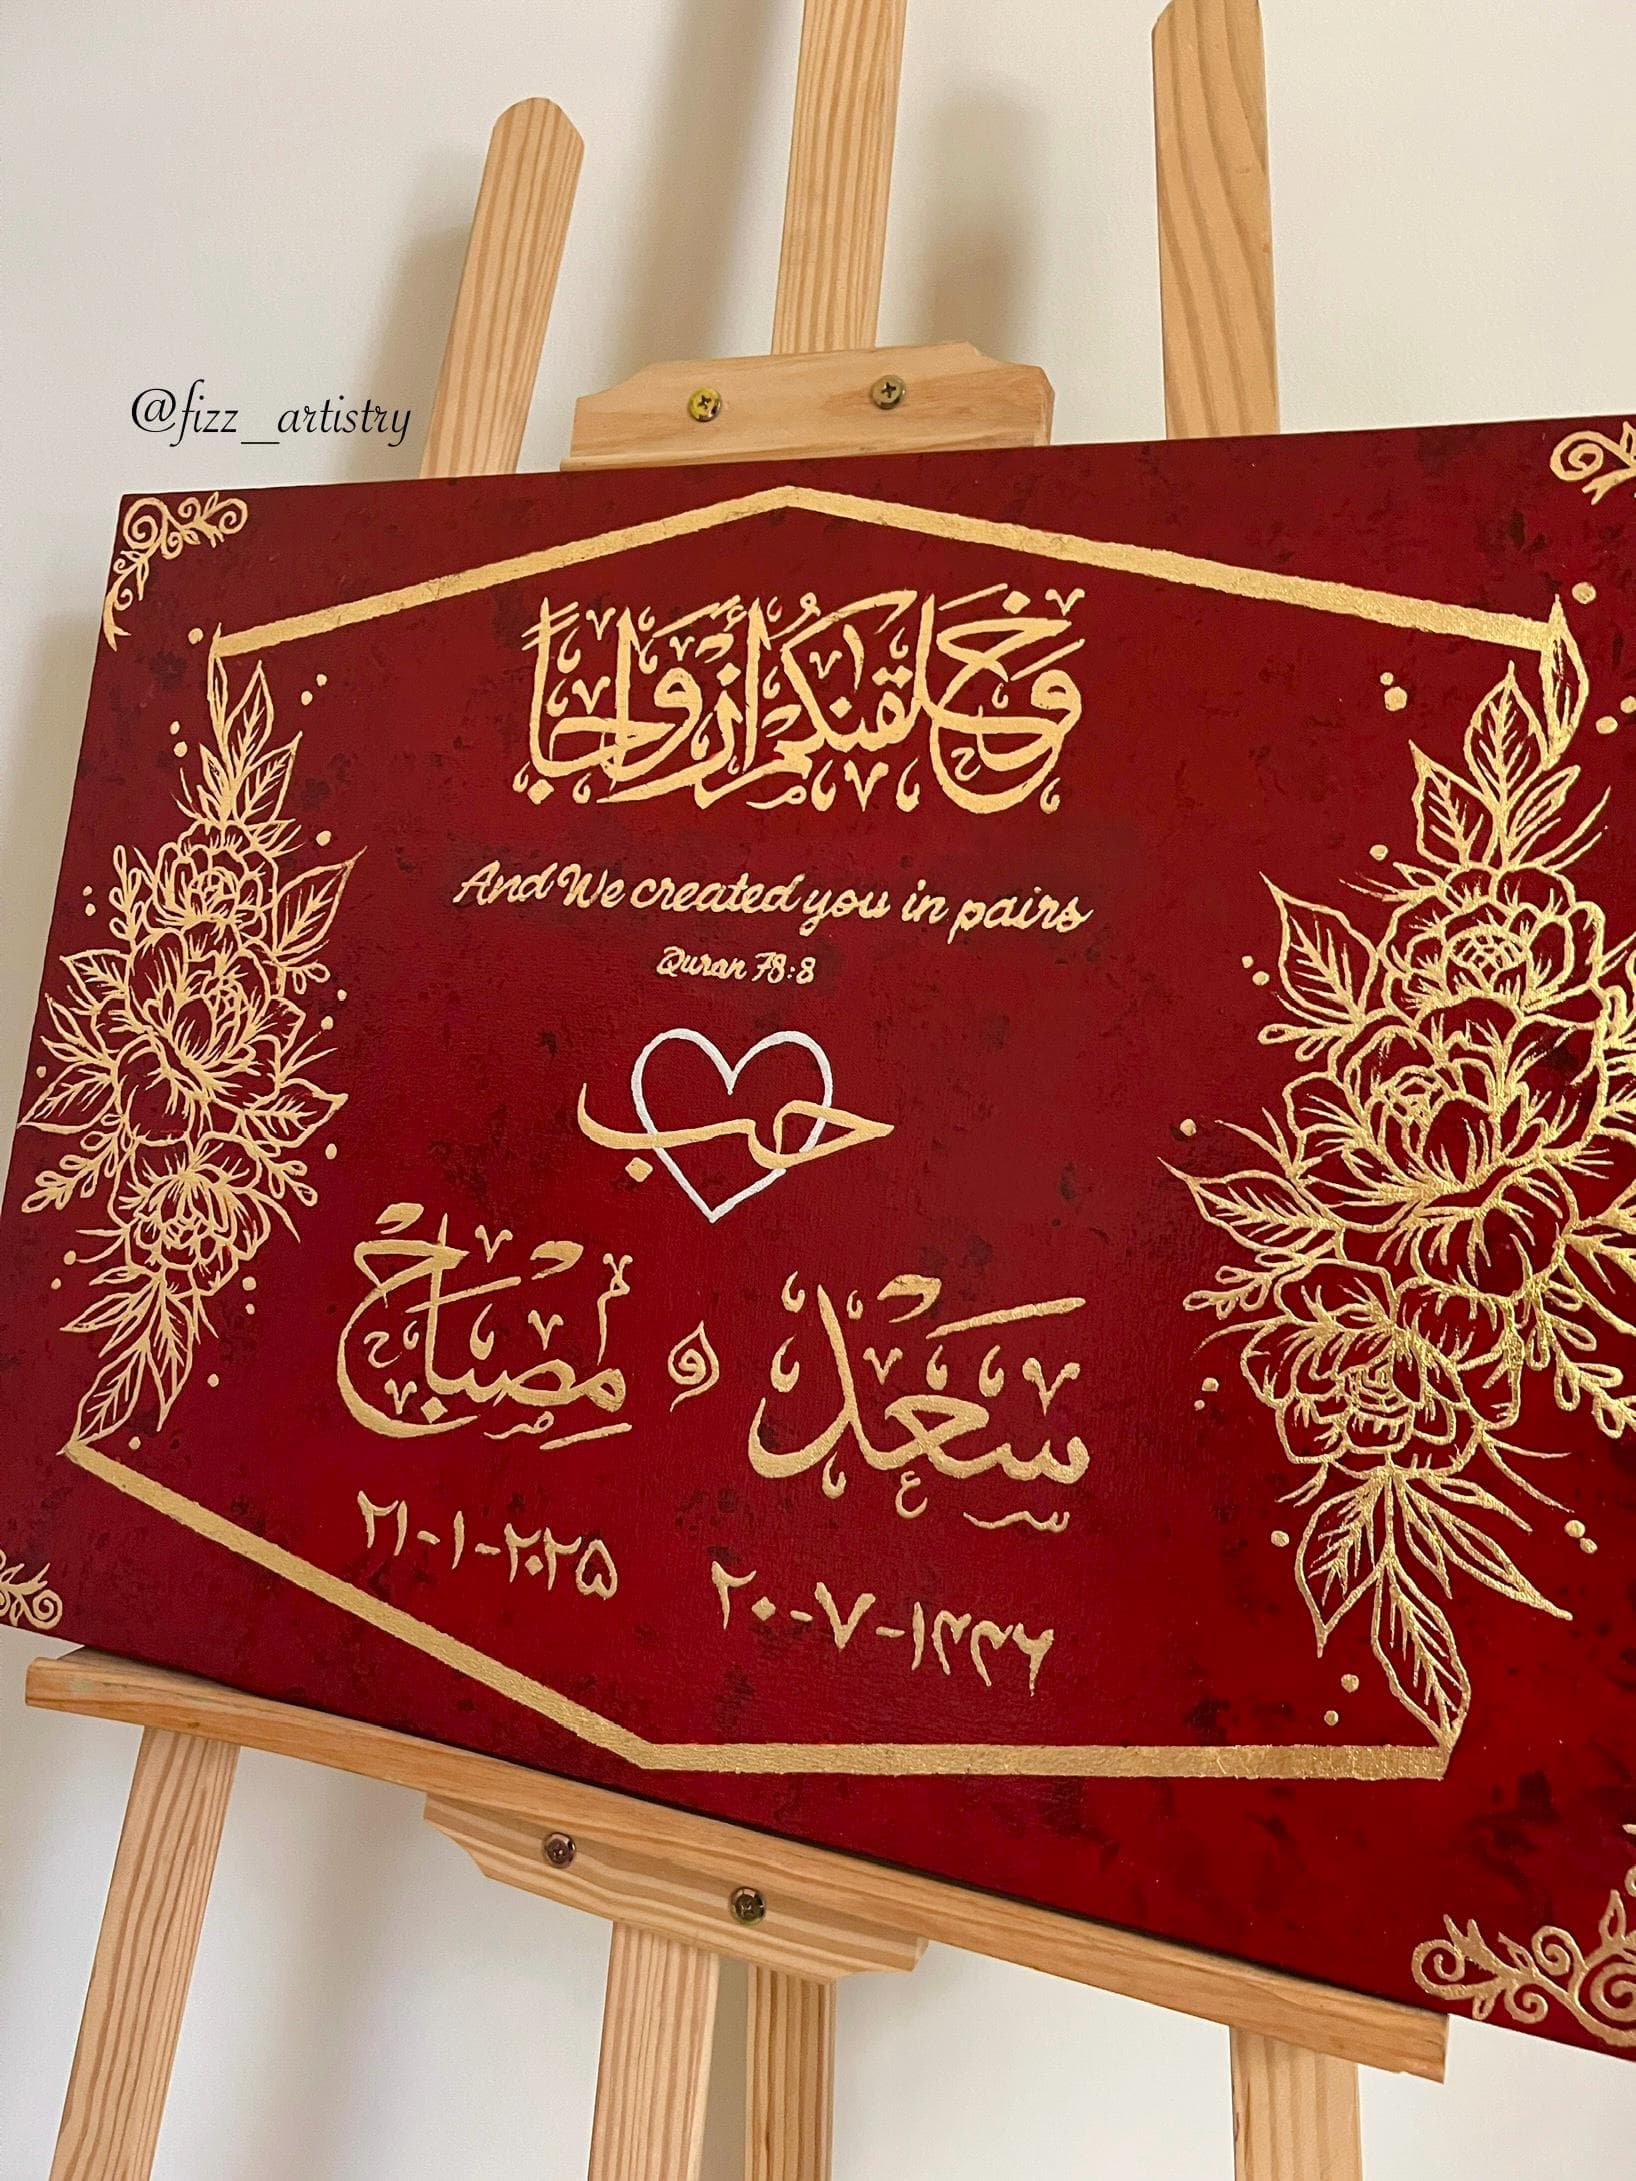 @fizz_artistry
وَخَلَقْنٰكُمْ أَزْوَاجًا
And We created you in pairs
Quran 78:8
حب
سَعْدْ و مِصْبَاحْ
٢١-١-٢٠٢٥
٢٠-٧-١٤٤٦